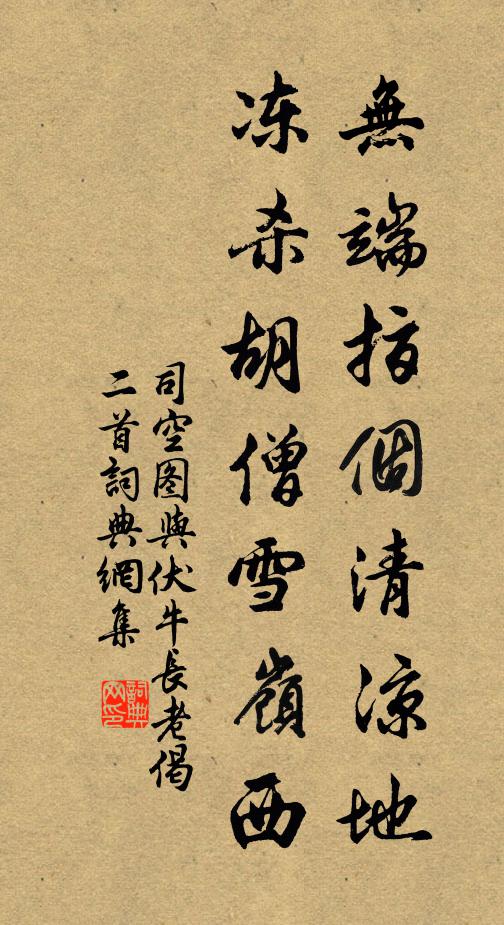 無端指個清涼地
凍杀胡僧雪嶺西
司空图與伏牛長老偈
二首詞典網集
詞典
网印